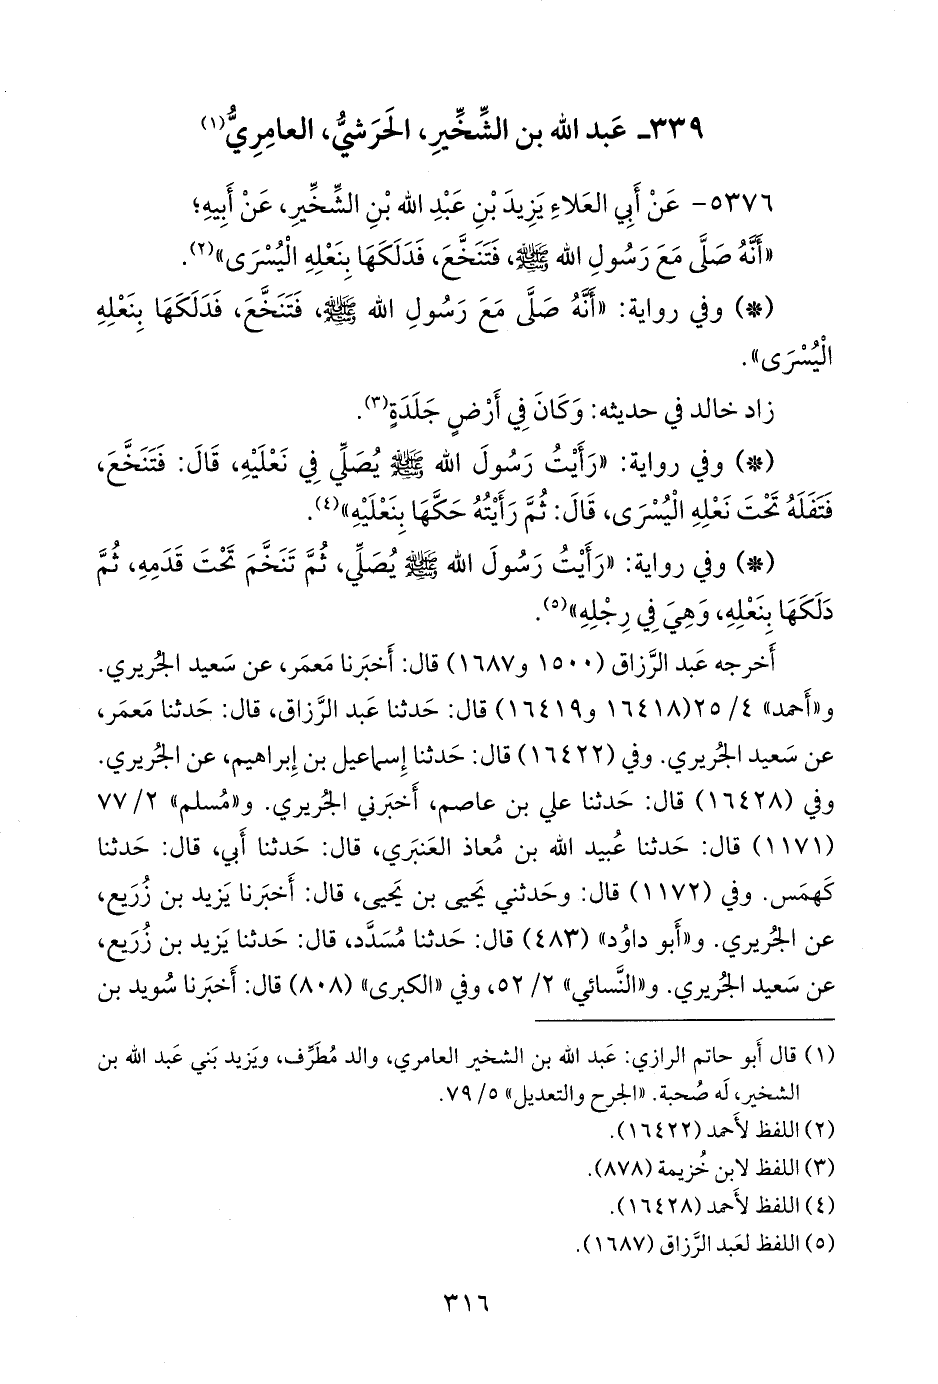 ٣٣٩ـ عَبد الله بن الشِّخِّيرِ، الحَرَشيُّ، العامِرِيُّ(١)
٥٣٧٦- عَنْ أَبِي العَلاءِ يَزِيدَ بْنِ عَبْدِ الله بْنِ الشِّخِّيرِ، عَنْ أَبِيهِ؛
«أَنَّهُ صَلَّى مَعَ رَسُولِ الله ﷺ، فَتَنَخَّعَ، فَدَلَكَهَا بِنَعْلِهِ الْيُسْرَى»(٢).
(*) وفي رواية: «أَنَّهُ صَلَّى مَعَ رَسُولِ الله ﷺ، فَتَنَخَّعَ، فَدَلَكَهَا بِنَعْلِهِ
الْيُسْرَى».
زاد خالد في حديثه: وَكَانَ فِي أَرْضٍ جَلَدَةٍ(٣).
(*) وفي رواية: «رَأَيْتُ رَسُولَ الله ﷺ يُصَلِّي فِي نَعْلَيْهِ، قَالَ: فَتَنَخَّعَ،
فَتَفَلَهُ تَحْتَ نَعْلِهِ الْيُسْرَى، قَالَ: ثُمَّ رَأَيْتُهُ حَكَّهَا بِنَعْلَيْهِ»(٤).
(*) وفي رواية: «رَأَيْتُ رَسُولَ الله ﷺ يُصَلِّي، ثُمَّ تَنَخَّمَ تَحْتَ قَدَمِهِ، ثُمَّ
دَلَكَهَا بِنَعْلِهِ، وَهِيَ فِي رِجْلِهِ»(٥).
أَخرجه عَبد الرَّزاق (١٥٠٠ و١٦٨٧) قال: أَخبَرنا مَعمَر، عن سَعيد الجُريري.
و«أَحمد» ٤/ ٢٥(١٦٤١٨ و١٦٤١٩) قال: حَدثنا عَبد الرَّزاق، قال: حَدثنا مَعمَر،
عن سَعيد الجُريري. وفي (١٦٤٢٢) قال: حَدثنا إِسماعيل بن إِبراهيم، عن الجُريري.
وفي (١٦٤٢٨) قال: حَدثنا علي بن عاصم، أَخبَرني الجُريري. و«مُسلم» ٢/ ٧٧
(١١٧١) قال: حَدثنا عُبيد الله بن مُعاذ العَنبَري، قال: حَدثنا أَبي، قال: حَدثنا
كَهمَس. وفي (١١٧٢) قال: وحَدثني يَحيى بن يَحيى، قال: أَخبَرنا يَزيد بن زُرَيع،
عن الجُريري. و«أَبو داوُد» (٤٨٣) قال: حَدثنا مُسَدَّد، قال: حَدثنا يَزيد بن زُرَيع،
عن سَعيد الجُريري. و«النَّسائي» ٢/ ٥٢، وفي «الكبرى» (٨٠٨) قال: أَخبَرنا سُويد بن
(١) قال أَبو حاتم الرازي: عَبد الله بن الشخير العامري، والد مُطَرِّف، ويَزيد بَني عَبد الله بن
الشخير، لَه صُحبة. «الجرح والتعديل» ٥/ ٧٩.
(٢) اللفظ لأَحمد (١٦٤٢٢).
(٣) اللفظ لابن خُزيمة (٨٧٨).
(٤) اللفظ لأَحمد (١٦٤٢٨).
(٥) اللفظ لعَبد الرَّزاق (١٦٨٧).
٣١٦